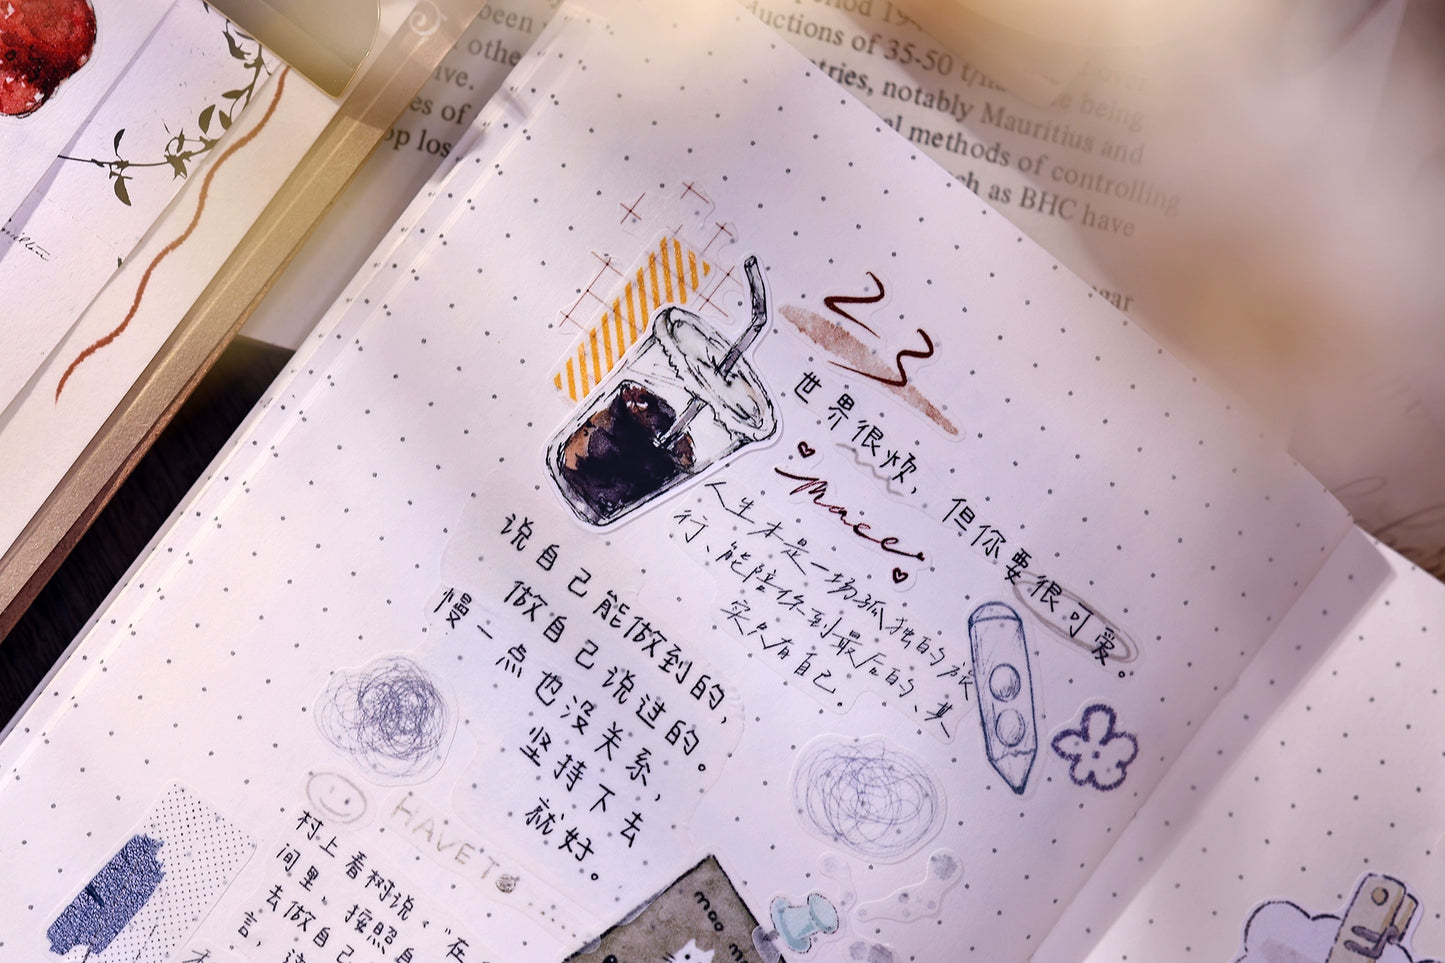 been
othe
ive.
es of
op los
uctions of 35-50 t
tries, notably Mauritius and
al methods of controlling
ch as BHC have
gar
over
e being
23
世界很烦，但你要很可爱。
人生本是一场孤独的旅
行、能陪你到最后的、其
实只有自己。
说自己能做到的，
做自己说过的。
慢一点也没关系，
坚持下去
就好。
HAVE T
村上春树说“在
间里，按照自
去做自己
言，这
moo m